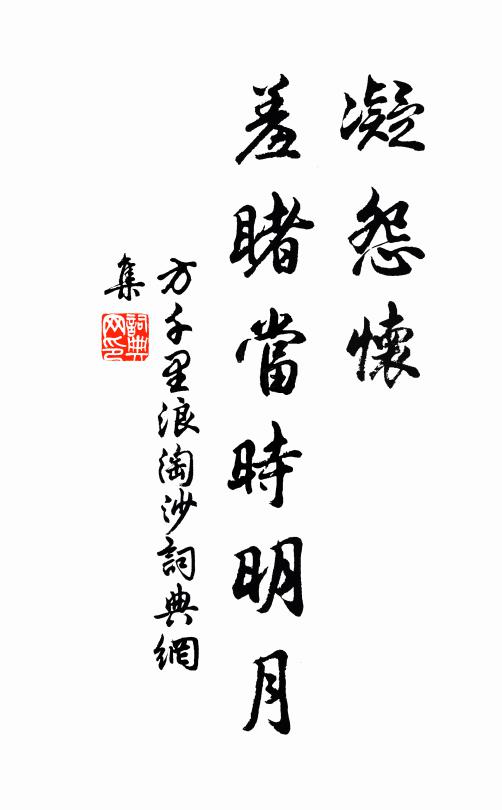 凝怨懷
羞睹當時明月
方千里浪淘沙詞典網
集
詞典
网印